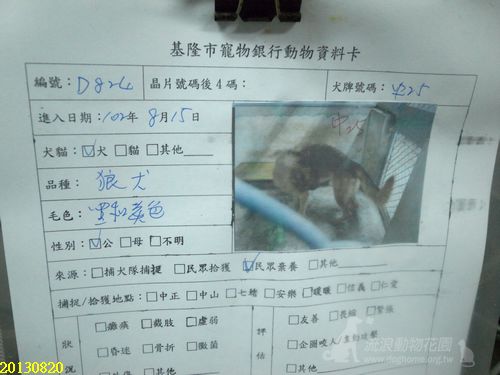 基隆市寵物銀行動物資料卡
編號：D824 晶片號碼後4碼： 犬牌號碼：中25
進入日期：102年8月15日
犬貓：☑犬 □貓 □其他
中25
品種：狼犬
毛色：黑和黃色
性別：☑公 □母 □不明
來源：□捕犬隊捕捉 □民眾拾獲 ☑民眾棄養 □其他
捕捉/拾獲地點：□中正 □中山 □七堵 □安樂 □暖暖 □信義 □仁愛
狀況
□癱瘓 □截肢 □虛弱
□昏迷 □骨折 □黴菌
□外傷 □其他
評估
□友善 □長縮 □緊張
□企圖咬人 主動攻擊
□其他
流浪動物花園
www.doghome.org.tw
20130820